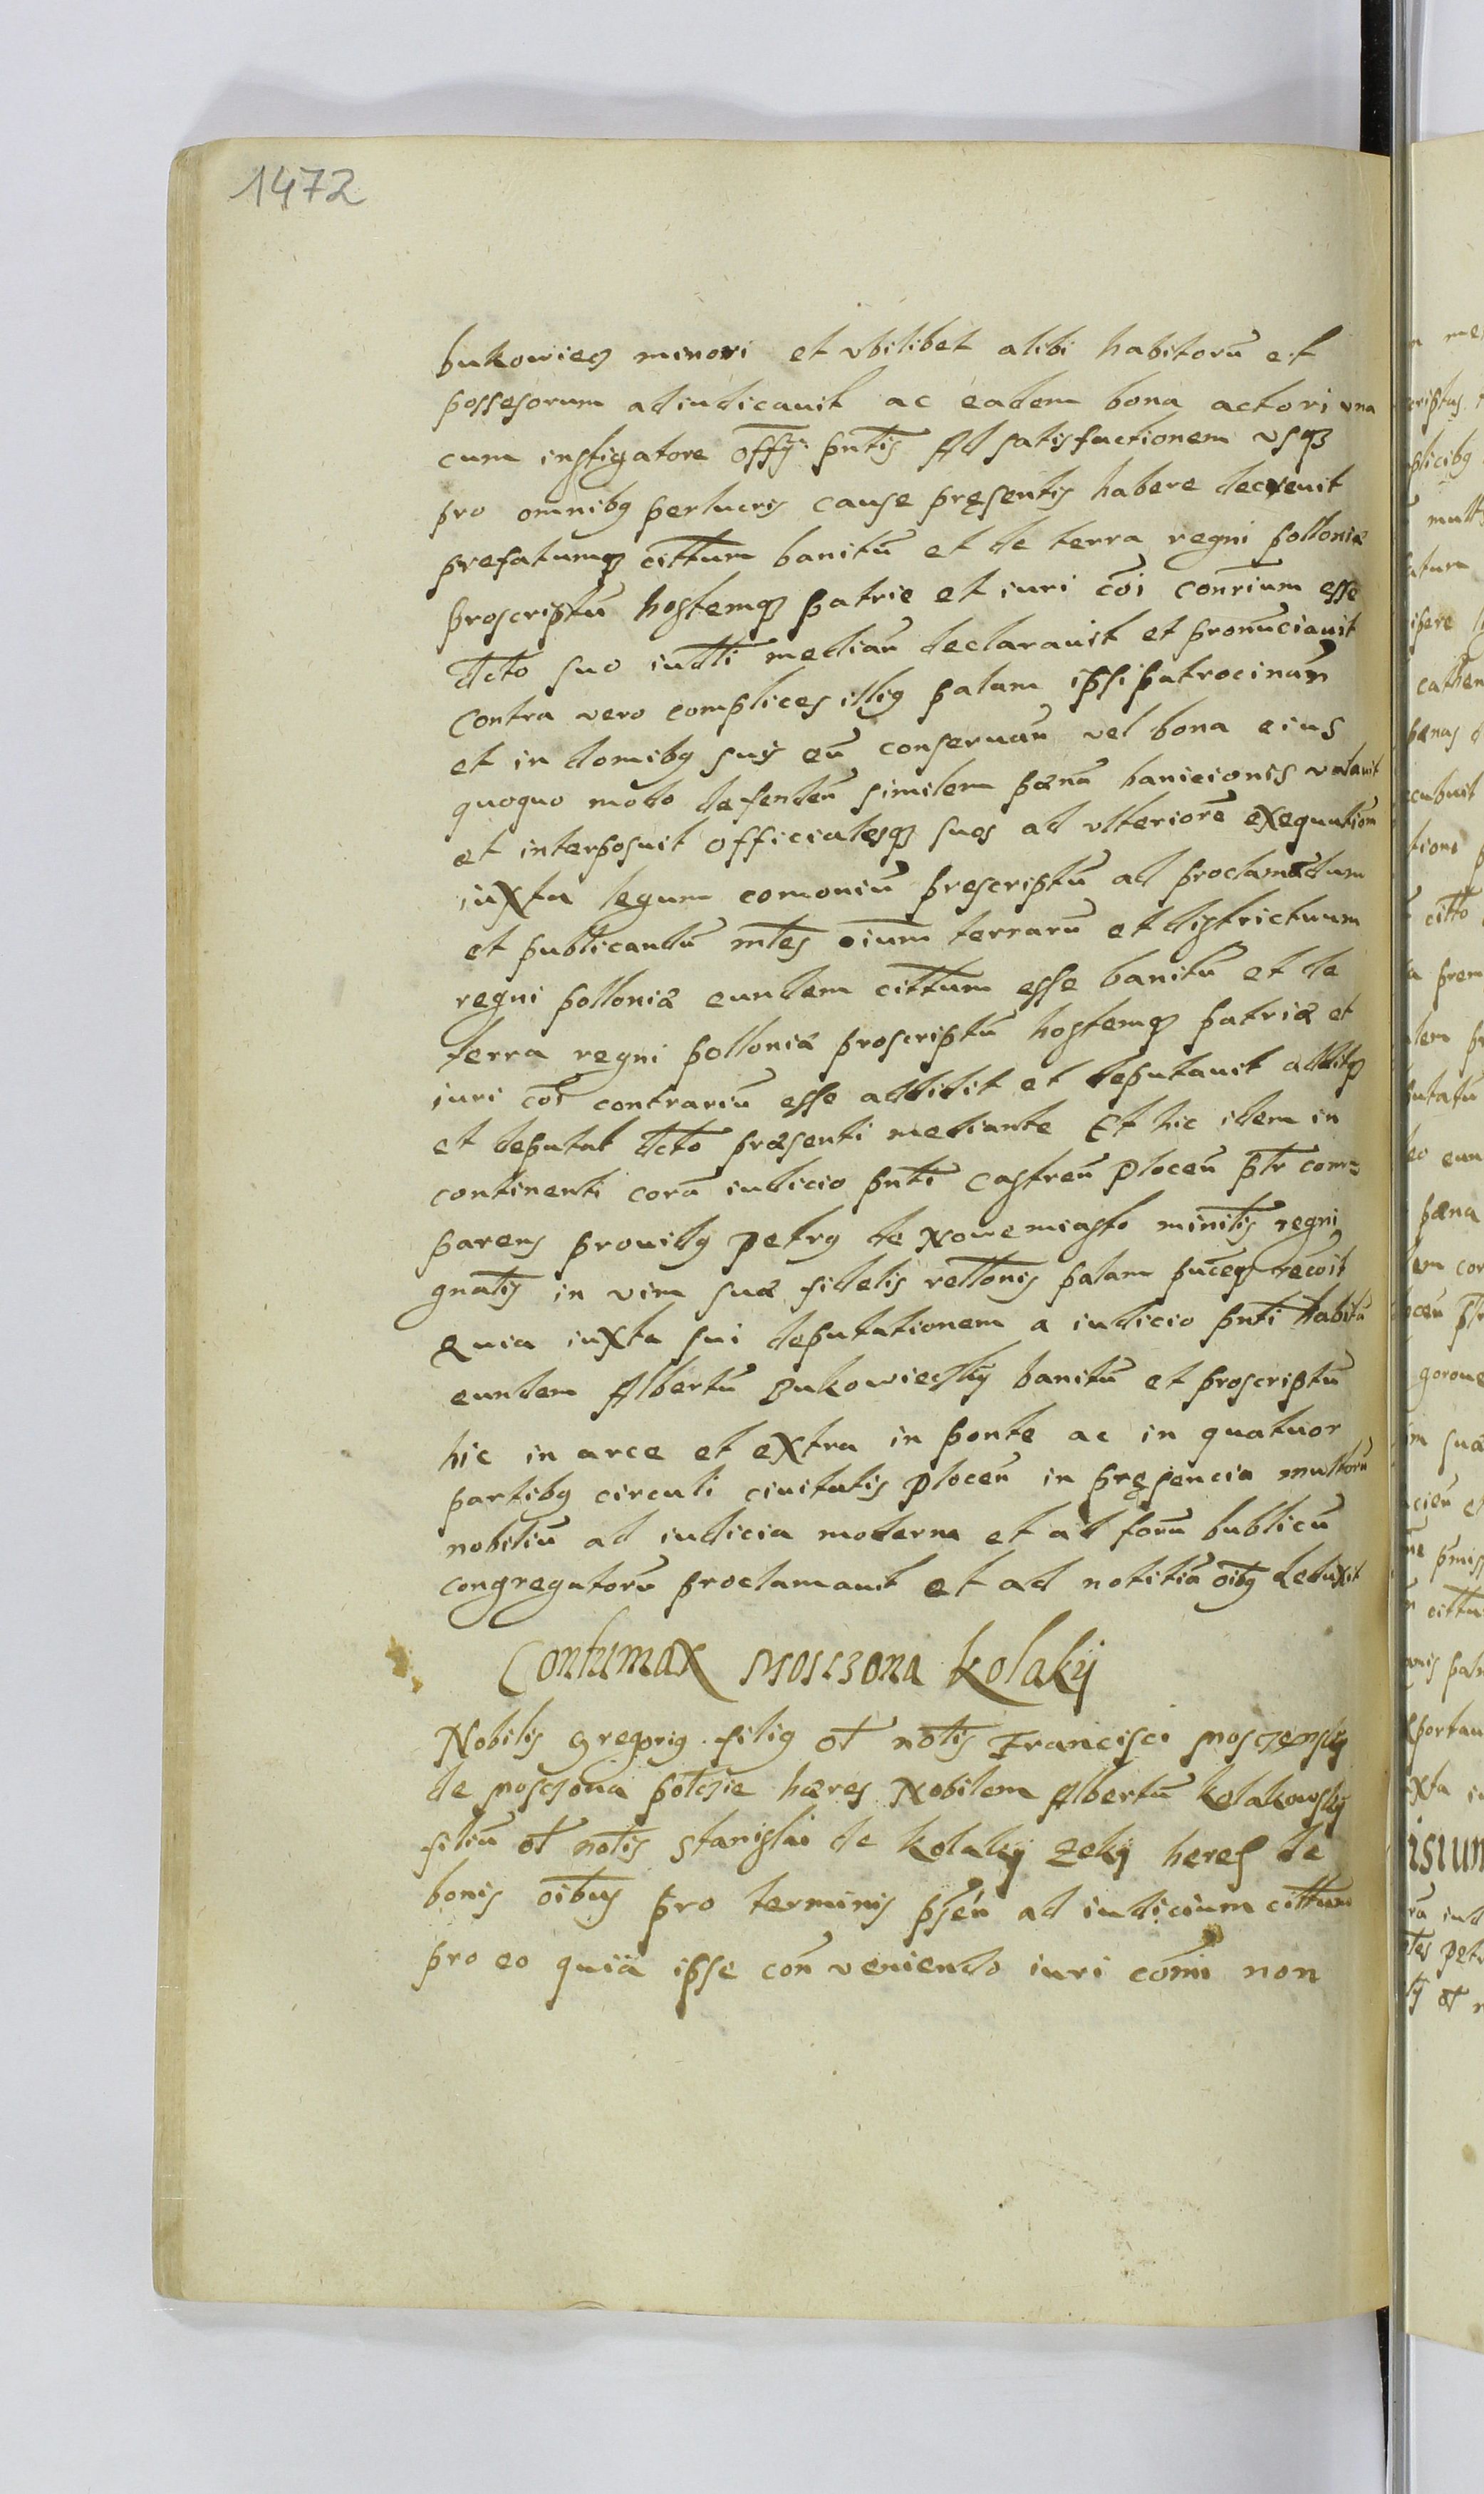 1472
bukowiecz minori et vbilibet alibi habitorū et
possesorum adiudicauit ac eadem bona actori vna
cum instigatore offy: pntis Ad satisfactionem vsqz
pro omnibg perlucris cause pręsentis habere decreuit
prefatumqz cittum banitū et de terra regni polloniæ
proscriptū hostemqz patrie et iuri cōi conrium esse
dcto suo iudli median̄ declarauit et pronūciauit
Contra vero complices illig palam ipsi patrocinan̄
et in domibg suis eū conseruan̄ vel bona eius
quoquo modo defenden̄ similem pænā banicionis valauit
et interposuit officialesqz suos ad vlteriorē exequutiom
iuxta legum comoniū prescriptū ad proclamādum
et publicandū mtes oium terrarū et districtuum
regni polloniæ eundem cittum esse banitū et de
terra regni polloniæ proscriptū hostemqz patriæ et
iuri cōi contrariū esse addidit et deputauit additqz
et deputat dcto præsenti mediante Et hic idem in
continenti corā iudicio pnti castren̄ plocen̄ ptr com=
parens prouidg petrg de Nowemiasto minitis regni
gnatis in vim suæ fidelis reltionis palam puceqz recoit
Quia iuxta sui deputationem a iudicio pnti habitā
eundem Albertū Bukowieczkij banitū et proscriptū
hic in arce et extra in ponte ac in quatuor
partibg circuli ciuitatis plocen̄ in pręsencia multorū
nobiliū ad iudicia moderna et ad forū bublicū
congregatorū proclamauit et ad notitiā oibg deduxit
Contumax Moszczona kolakij
Nobilis gregorig filig ol notis Francisci Mosczenskij
de Mosczona potczie hæres Nobilem Albertū kolakowskij
filiū ol notis Stanislai de kolakij zekij heres de
bonis oibus pro terminis psen̄ ad iudicium cittum
pro eo quia ipse con̄ veniendo iuri comi non